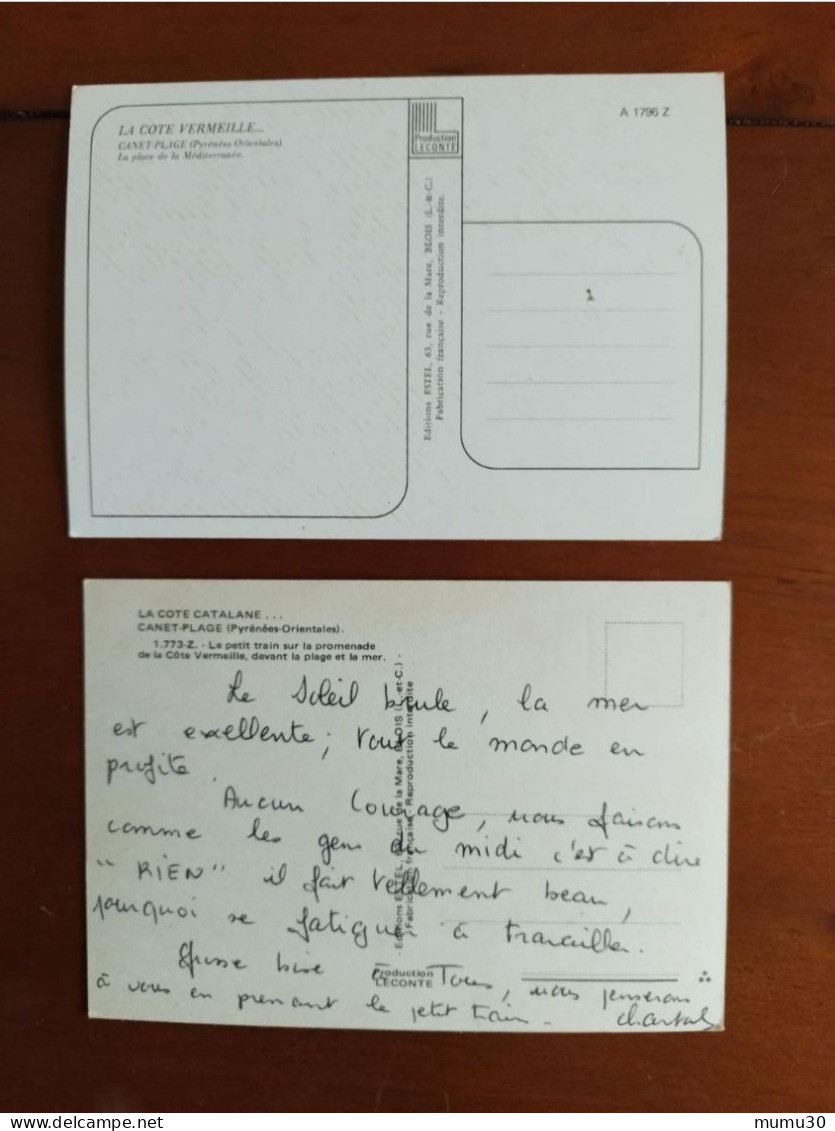 LA COTE VERMEILLE...
CANET-PLAGE (Pyrénées-Orientales)
La place de la Méditerranée.
Production
LECONTE
A 1796 Z
Editions ESTEL, 63, rue de la Mare, BLOIS (L.-&-C.)
Fabrication française - Reproduction interdite.
1
LA COTE CATALANE ...
CANET-PLAGE (Pyrénées-Orientales).
1.773-Z. - Le petit train sur la promenade
de la Côte Vermeille, devant la plage et la mer.
Le Soleil brule, la mer
est excellente; tout le monde en
profite.
Aucun Courage, nous faisons
comme les gens du midi c'est à dire
"RIEN" il fait tellement beau,
pourquoi se fatiguer à travailler.
Grosse bise à Tous, nous penserons
à vous en prenant le petit train. Chantal
Editions ESTEL, rue de la Mare, BLOIS (L.-et-C.) -
Fabrication française - Reproduction interdite
Production
LECONTE
mumu30